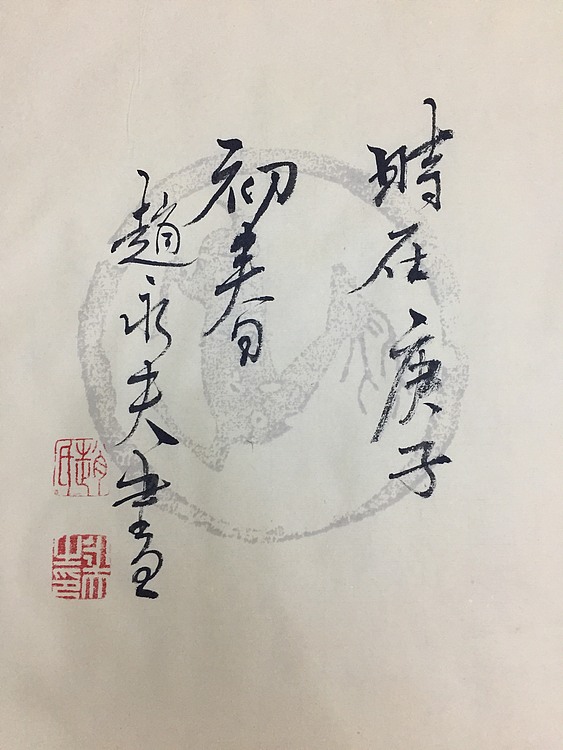 時在庚子
初春
趙永夫書
趙氏